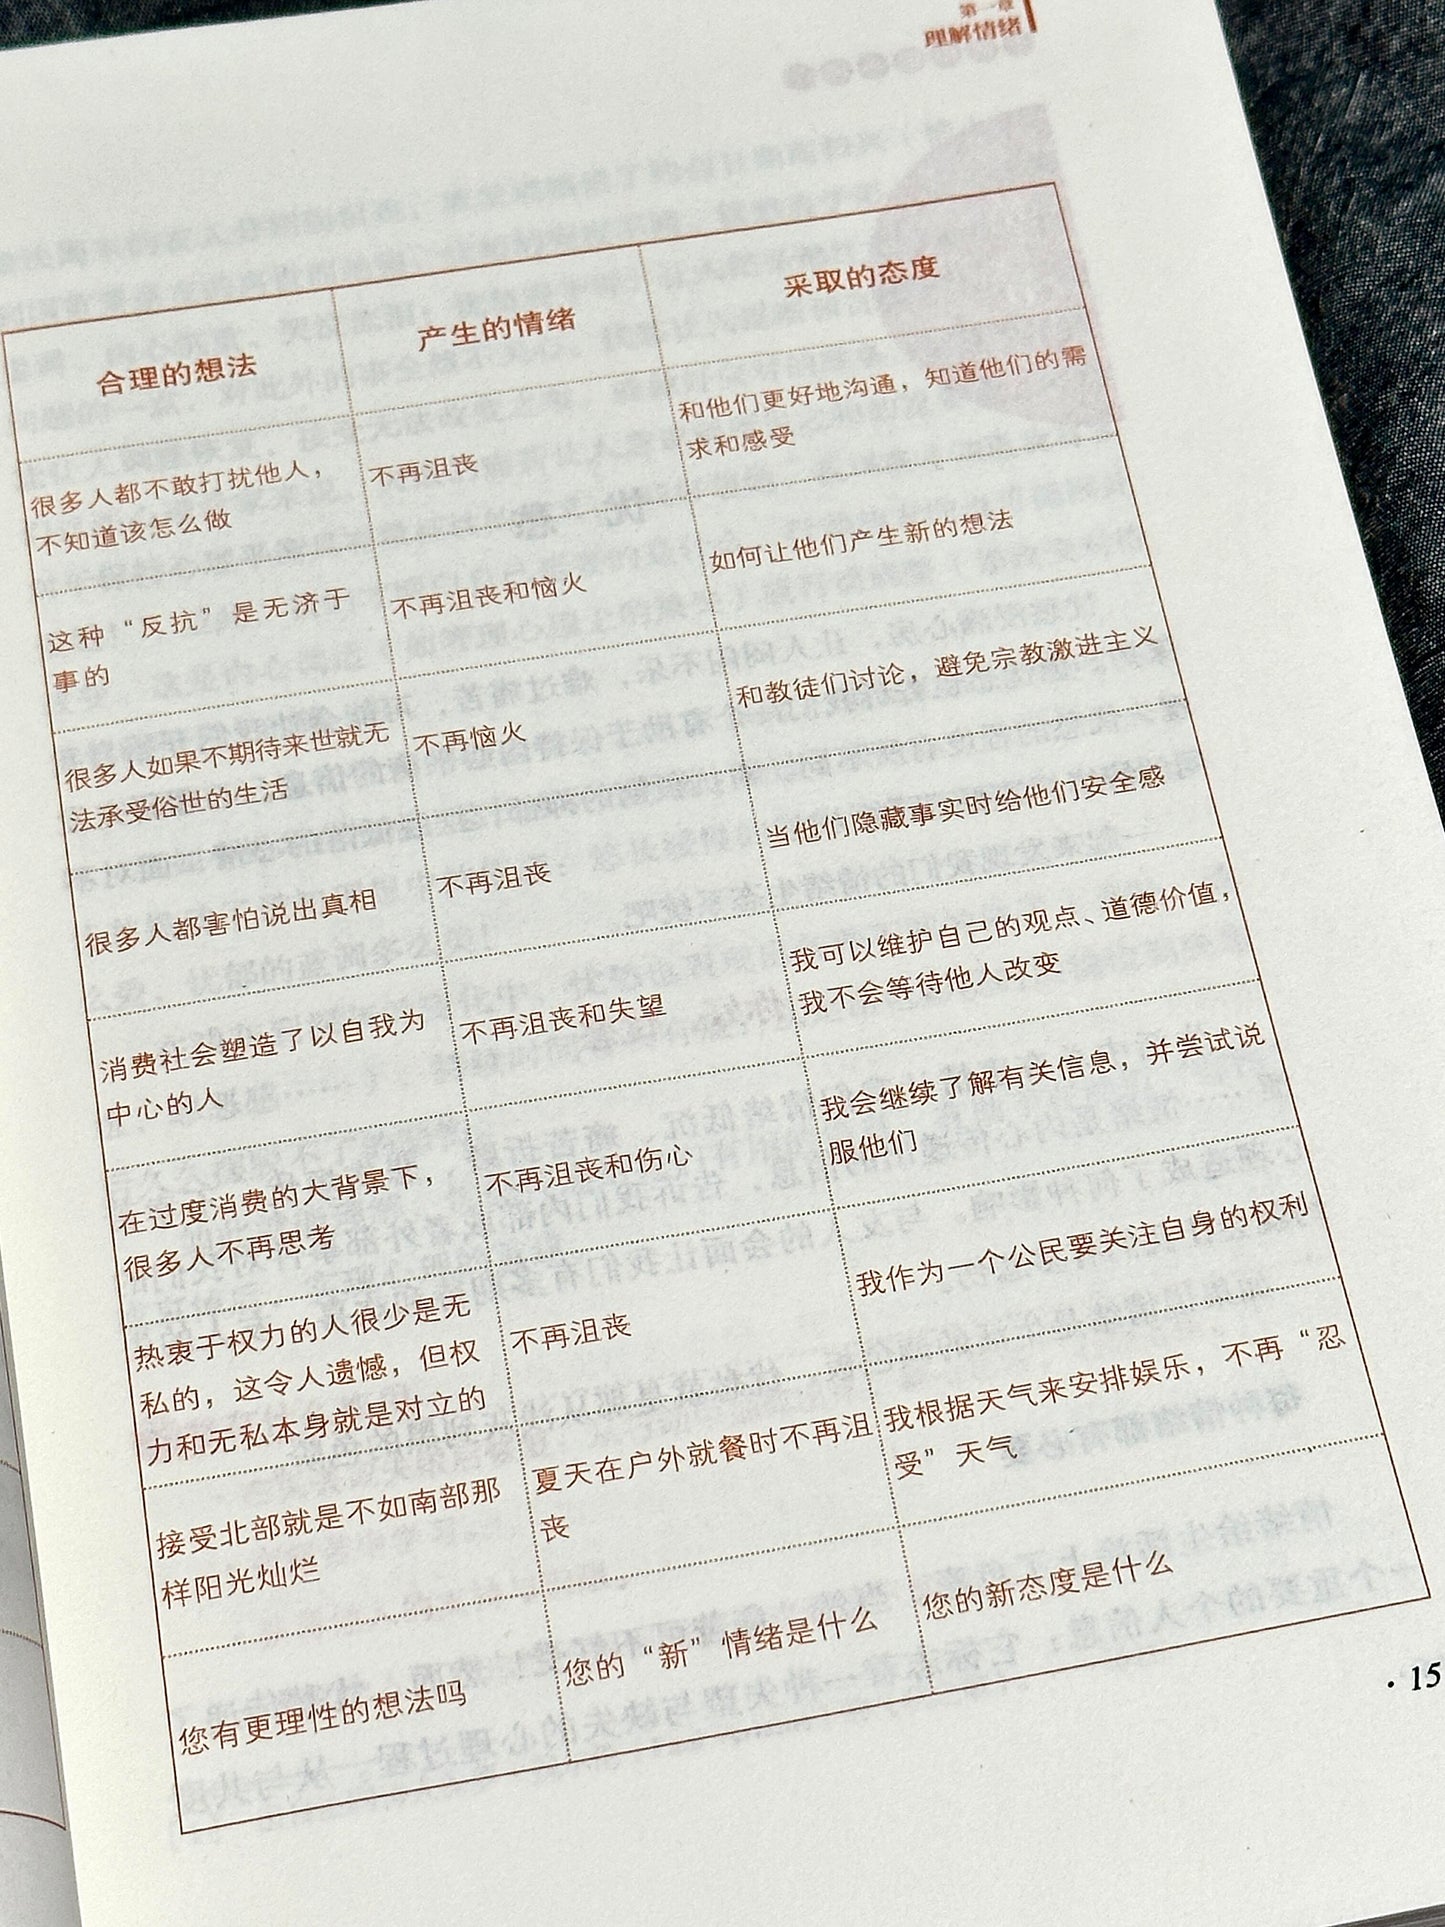 第一章
理解情绪
合理的想法
产生的情绪
采取的态度
很多人都不敢打扰他人，
不知道该怎么做
不再沮丧
和他们更好地沟通，知道他们的需
求和感受
这种“反抗”是无济于
事的
不再沮丧和恼火
如何让他们产生新的想法
很多人如果不期待来世就无
法承受俗世的生活
不再恼火
和教徒们讨论，避免宗教激进主义
很多人都害怕说出真相
不再沮丧
当他们隐藏事实时给他们安全感
消费社会塑造了以自我为
中心的人
不再沮丧和失望
我可以维护自己的观点、道德价值，
我不会等待他人改变
在过度消费的大背景下，
很多人不再思考
不再沮丧和伤心
我会继续了解有关信息，并尝试说
服他们
热衷于权力的人很少是无
私的，这令人遗憾，但权
力和无私本身就是对立的
不再沮丧
我作为一个公民要关注自身的权利
接受北部就是不如南部那
样阳光灿烂
夏天在户外就餐时不再沮
丧
我根据天气来安排娱乐，不再“忍
受”天气
您有更理性的想法吗
您的“新”情绪是什么
您的新态度是什么
· 15